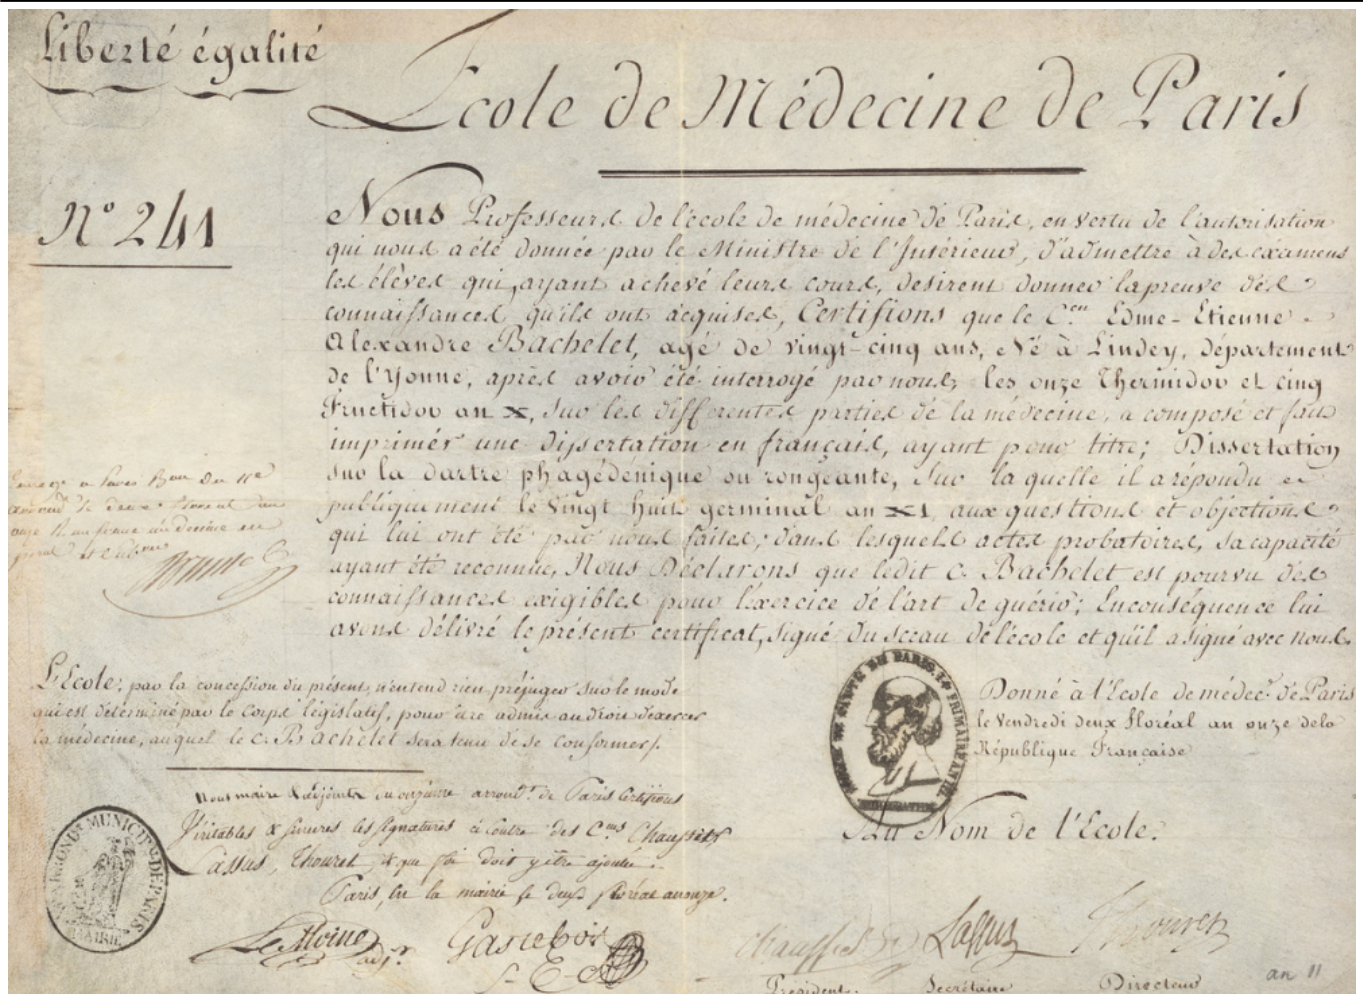 Liberté égalité
École de Médecine de Paris
N.° 241
Nous Professeurs de l'école de médecine de Paris, en vertu de l'autorisation
qui nous a été donnée par le Ministre de l'Intérieur, d'admettre à des éxamens
les élèves qui, ayant achevé leurs cours, desirent donner la preuve des
connaissances qu'ils ont acquises, Certifions que le C.en Edme-Etienne
Alexandre Bachelet, agé de vingt-cinq ans, Né à Lindey, département
de l'Yonne, après avoir été interrogé par nous, les onze Thermidor et cinq
Fructidor an X, sur les différentes parties de la médecine, a composé et fait
imprimer une dissertation en français, ayant pour titre; Dissertation
sur la dartre phagédenique ou rongeante, sur laquelle il a répondu
publiquement le vingt huit germinal an XI, aux questions et objections
qui lui ont été par nous faites; dans lesquels actes probatoires, sa capacité
ayant été reconnue, Nous Déclarons que ledit C. Bachelet est pourvu des
connaissances exigibles pour l'éxercice de l'art de guérir; En conséquence lui
avons délivré le présent certificat, signé du sceau de l'école et qu'il a signé avec nous.
L'Ecole, par la concession du présent, n'entend rien préjuger sur le mode
qui est déterminé par le Corps législatif, pour être admis au droit d'exercer
la médecine, auquel le C. Bachelet sera tenu de se conformer.
ÉCOLE DE SANTÉ DE PARIS. 14 FRIMAIRE AN III.
Donné à l'Ecole de médec.e de Paris
le Vendredi deux floréal an onze de la
République Française
Au Nom de l'Ecole.
Nous maire & adjoints du onzième arrond.t de Paris Certifions
Véritables & sincères les signatures ci contre des C.ens Chaussier
Lassus, Thouret & que foi doit y être ajoutée.
Paris, en la mairie le deux floréal an onze.
MUNICIP. DE PARIS
MAIRIE
Le Moine
adj.t
Gastebois
Chaussier Lassus Thouret
Président. Secrétaire Directeur
an 11